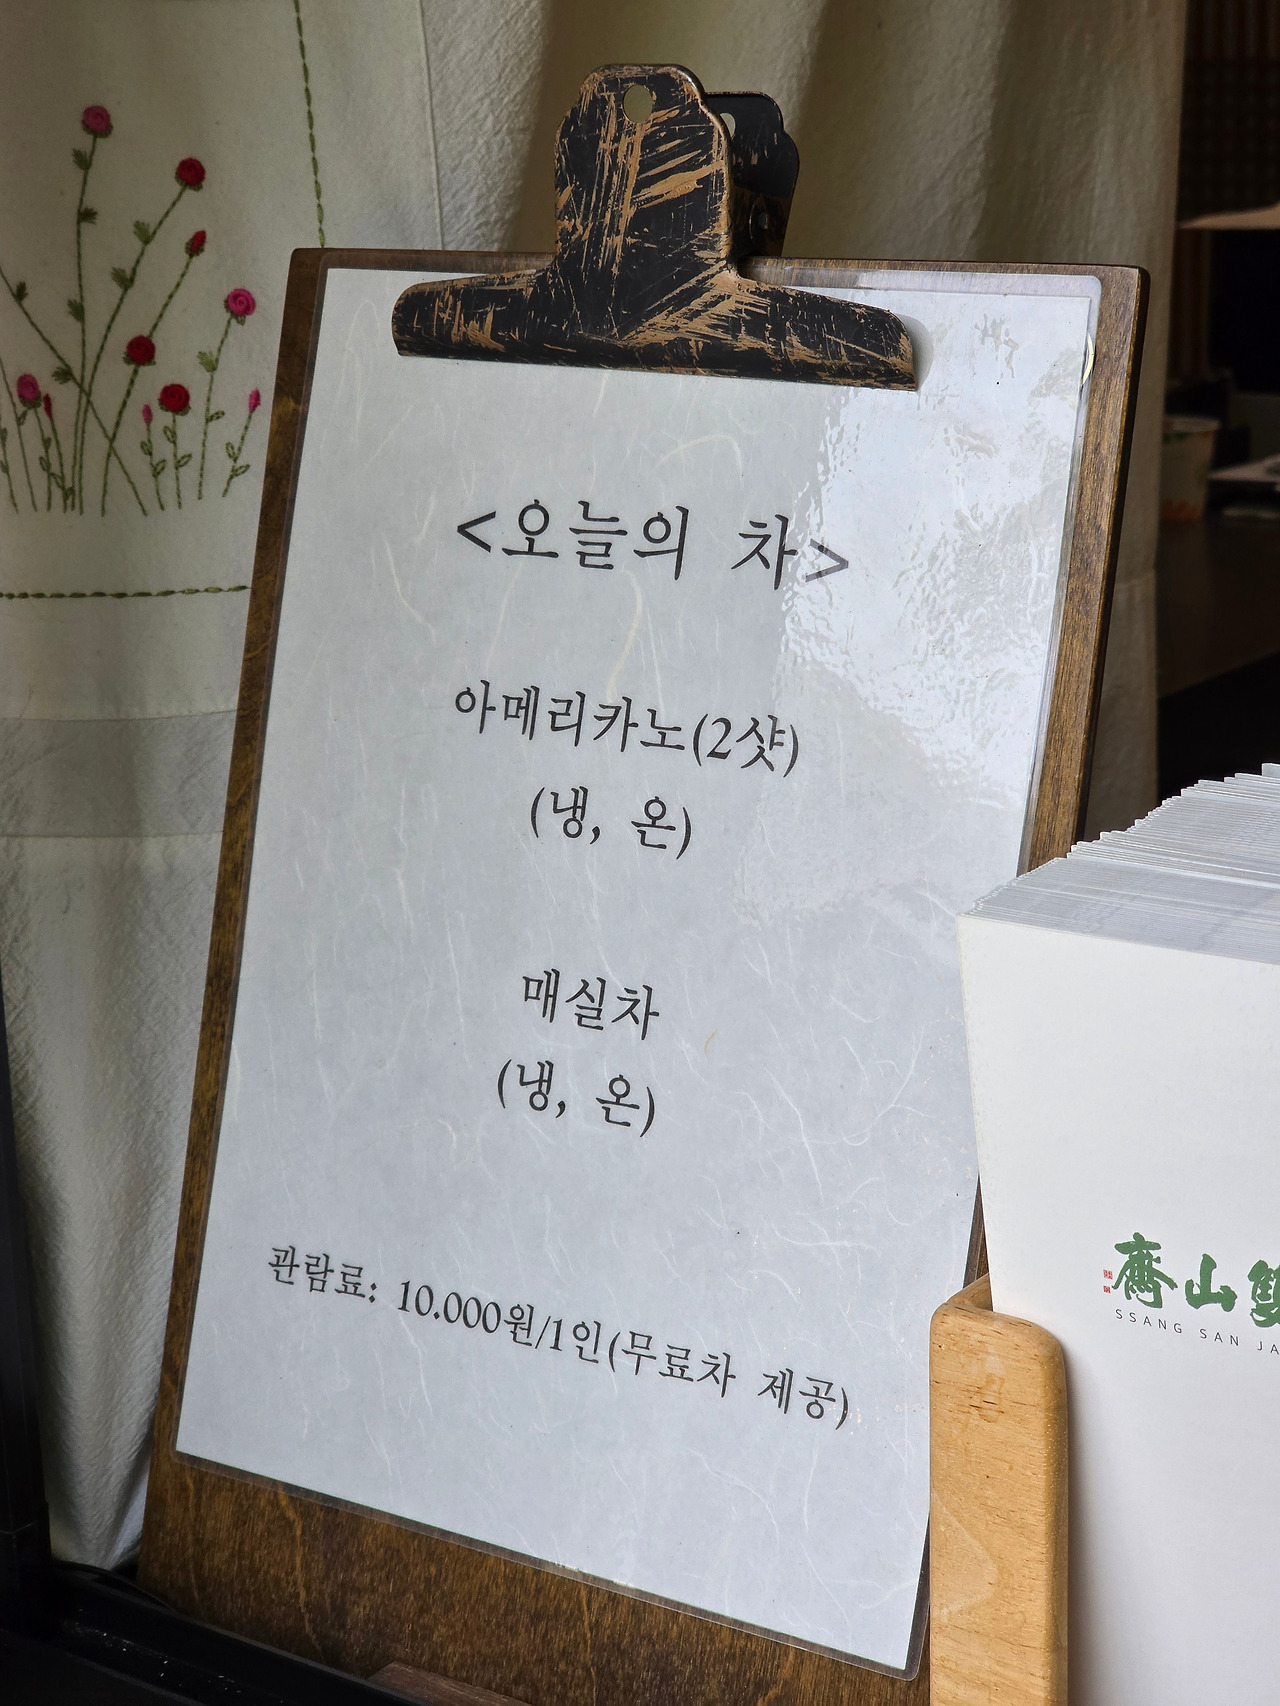 <오늘의 차>
아메리카노(2샷)
(냉, 온)
매실차
(냉, 온)
관람료: 10.000원/1인(무료차 제공)
齋山雙
SSANG SAN JA